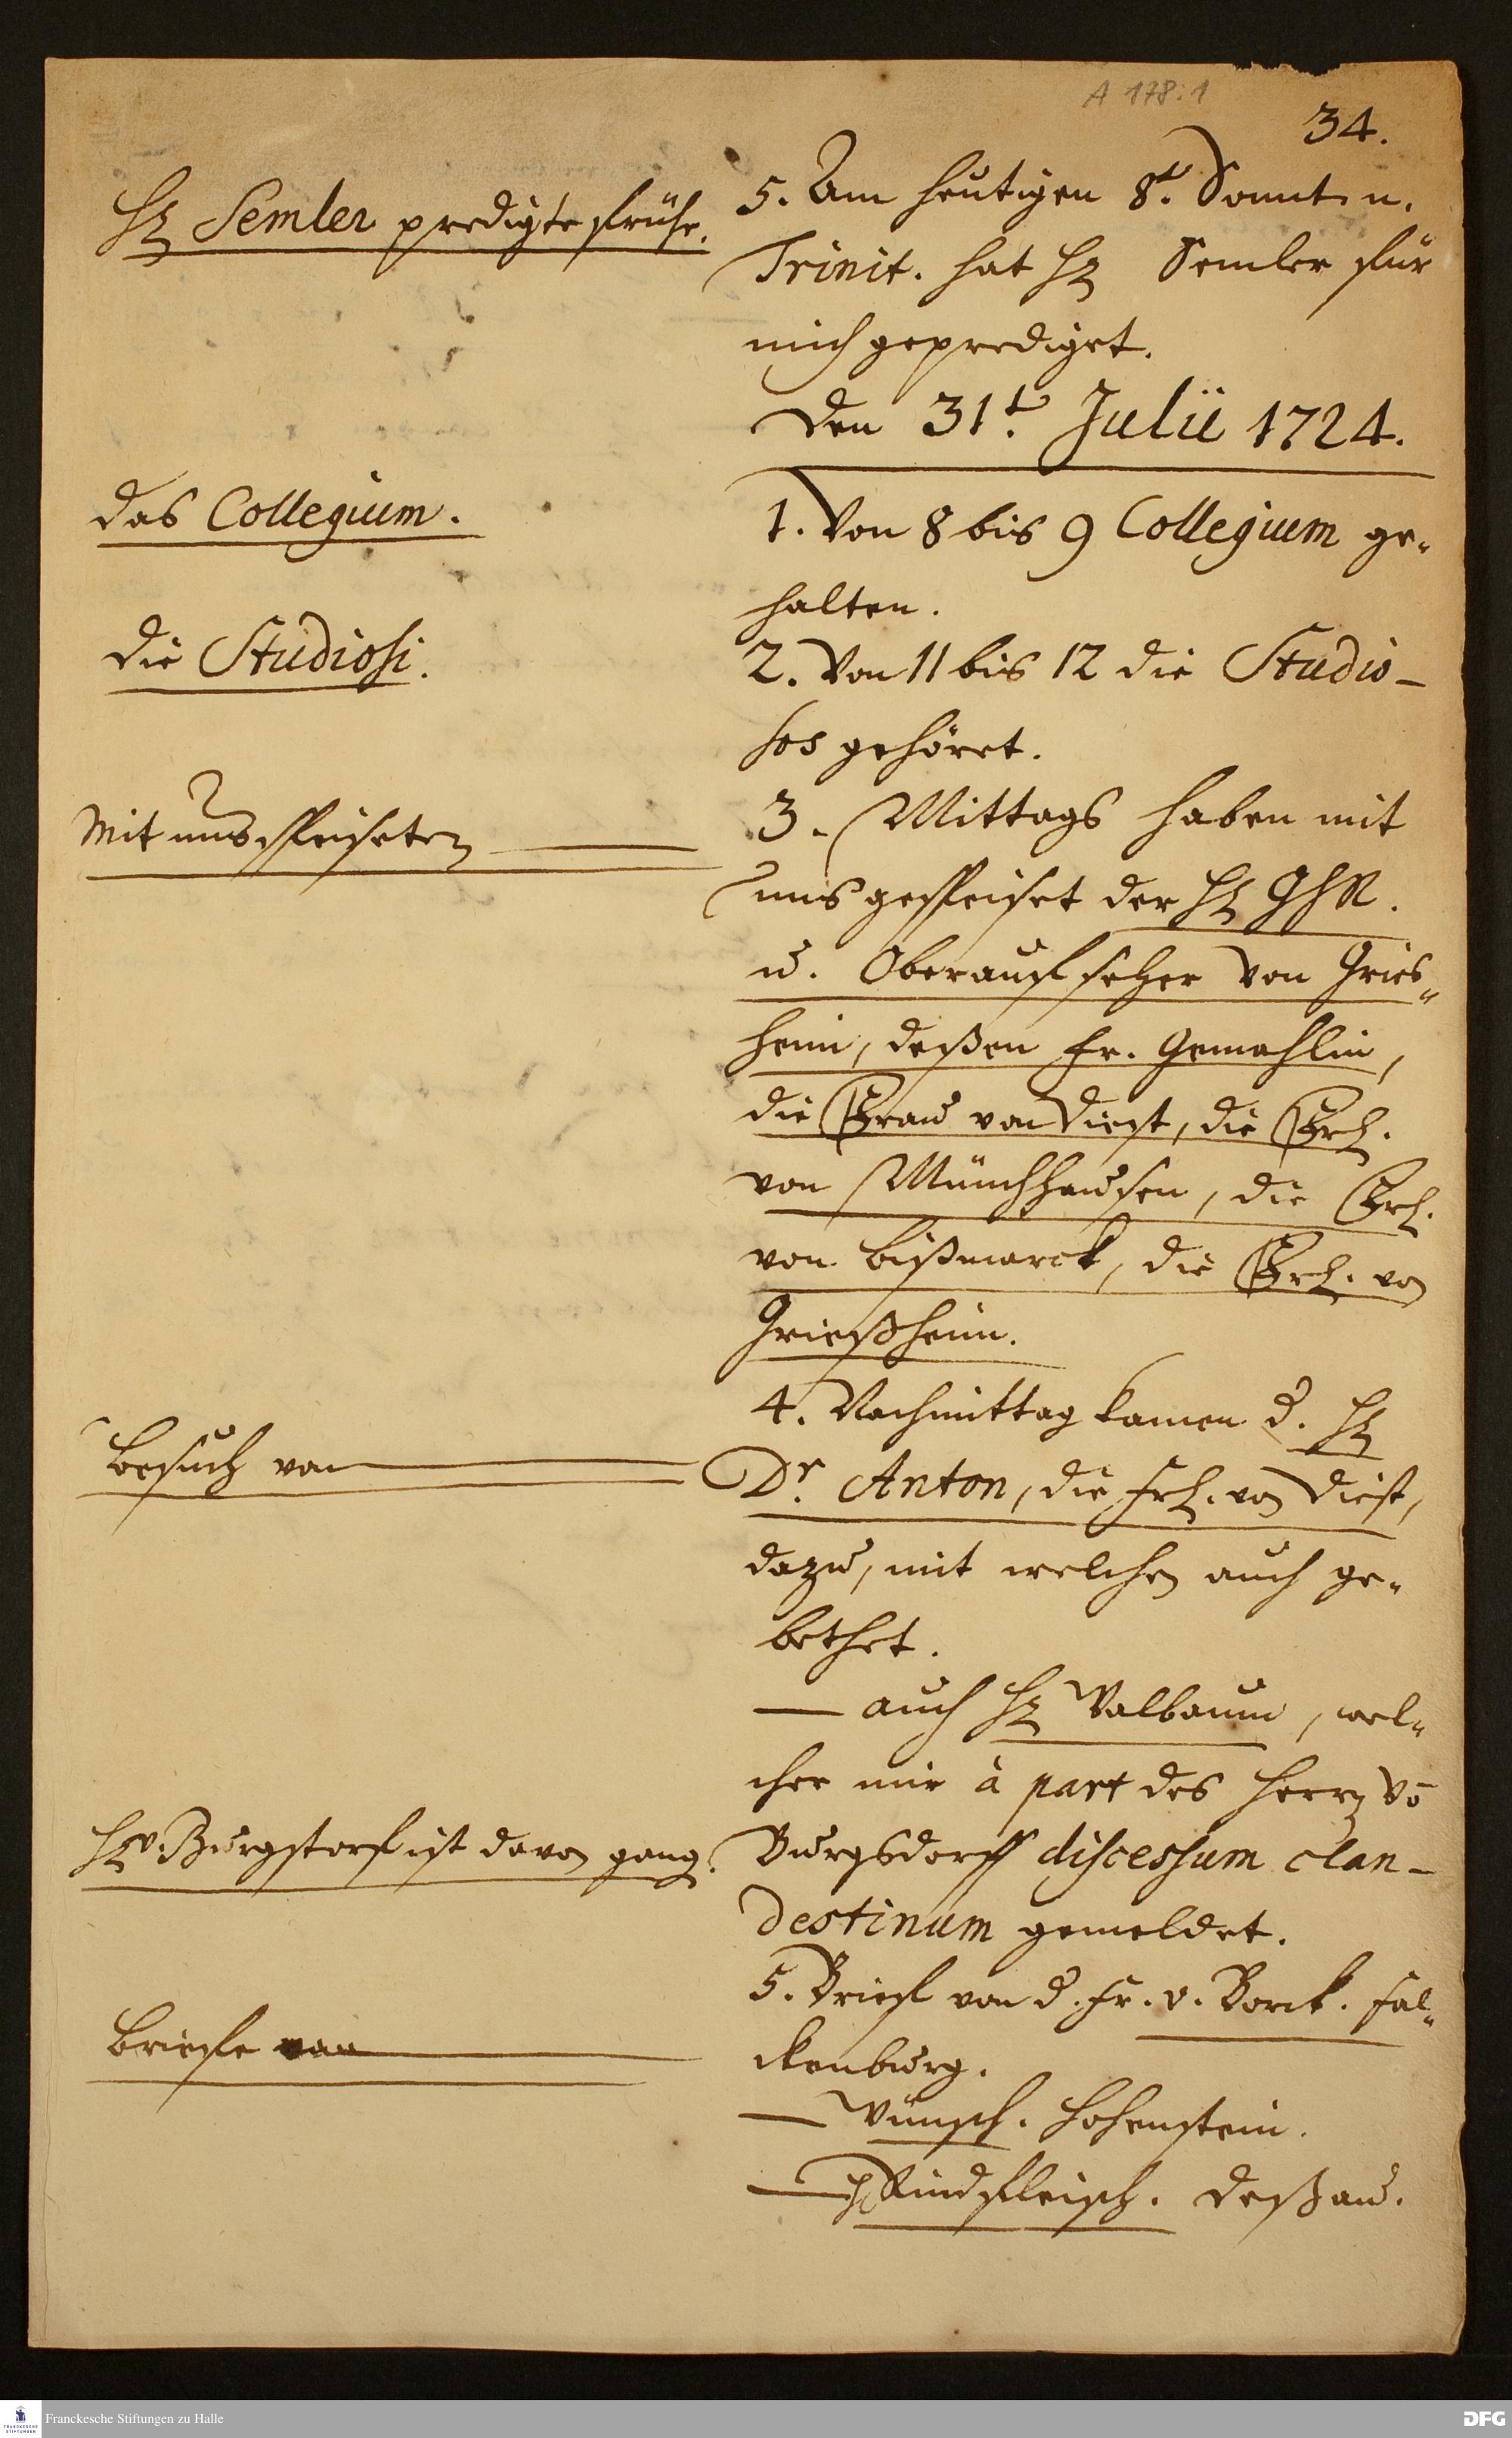 A 178:1
34.
H. Semler predigte früh.
5. Am heutigen 8t. Sonnt. n.
Trinit. hat H. Semler für
mich geprediget.
Den 31t. Julii 1724.
das Collegium.
1. Von 8 bis 9 Collegium ge-
halten.
die Studiosi.
2. Von 11 bis 12 die Studio-
sos gehöret.
Mit uns speiseten
3. Mittags haben mit
uns gespeiset der H. GhR.
u. Oberaufseher von Gries-
heim, deßen Fr. Gemahlin,
die Frau von Diest, die Frl.
von Münchhausen, die Frl.
von Bißmarck, die Frl. von
Grießheim.
Besuch von
4. Nachmittag kamen d. H.
Dr. Anton, die Frl. von Diest,
dazu, mit welchen auch ge-
bethet.
— auch H. Walbaum, wel-
cher mir à part des Herrn vo
Burgsdorff discessum clan-
destinum gemeldet.
H. v. Burgstorf ist davon gang.
5. Brief von d. Fr. v. Borck. Fal-
ckenburg.
Briefe von
— Wünsch. Hohenstein.
— H. Rindfleisch. Deßau.
Franckesche Stiftungen zu Halle
FRANCKESCHE STIFTUNGEN
DFG